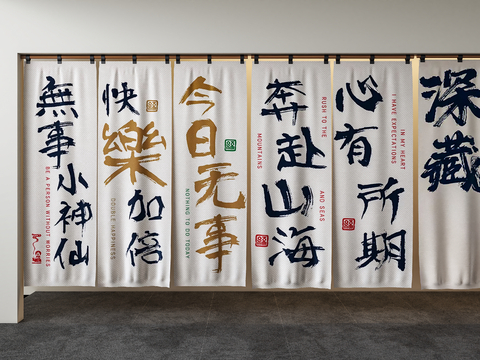 無事
小神仙
BE A PERSON WITHOUT WORRIES
快樂加倍
DOUBLE HAPPINESS
今日无事
NOTHING TO DO TODAY
奔赴山海
RUSH TO THE
MOUNTAINS
AND SEAS
心有所期
IN MY HEART
I HAVE EXPECTATIONS
深藏